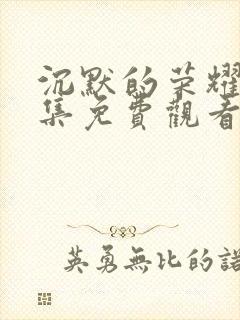 沉默的荣耀
集免費觀看
英勇無比的諾